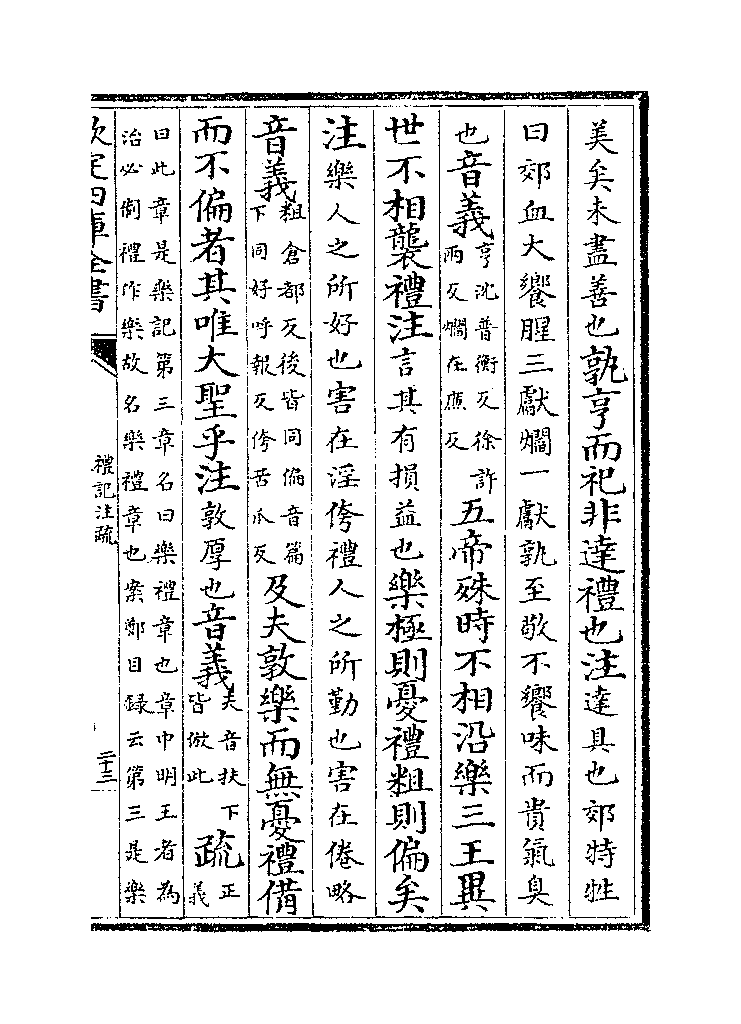 美矣未盡善也孰亨而祀非達禮也注達具也郊特牲
曰郊血大饗腥三獻爓一獻孰至敬不饗味而貴氣臭
也音義亨沈普衡反徐許
兩反爓在廉反
五帝殊時不相沿樂三王異
世不相襲禮注言其有損益也樂極則憂禮粗則偏矣
注樂人之所好也害在淫侉禮人之所勤也害在倦略
音義粗倉都反後皆同偏音篇
下同好呼報反侉苦瓜反
及夫敦樂而無憂禮備
而不偏者其唯大聖乎注敦厚也音義夫音扶下
皆倣此
疏正
義
曰此章是樂記第三章名曰樂禮章也章中明王者為
治必制禮作樂故名樂禮章也案鄭目録云第三是樂
欽定四庫全書
禮記注疏
二十三